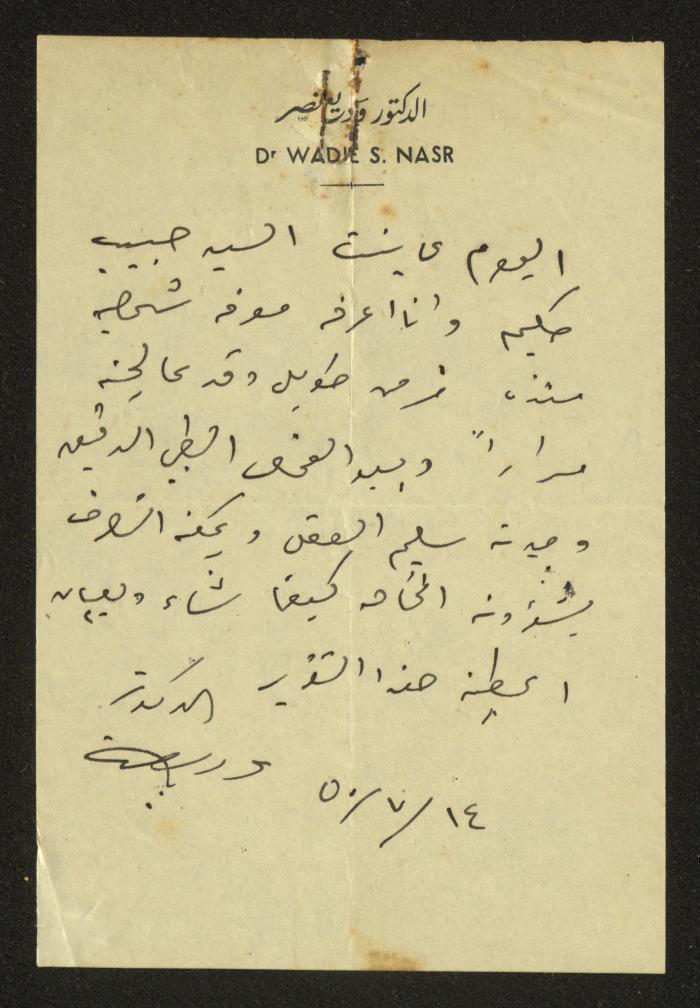 الدكتور وديع نصر
Dr WADIE S. NASR
اليوم عاينت السيد حبيب
حكيم وانا اعرفه معرفه شخصيه
منذ زمن طويل وقد عالجته
مراراً وبعد الفحص الطبي الدقيق
وجدته سليم العقل ويمكنه التصرف
بشؤونه الخاصه كيفما شاء
اعطيته هذا التقرير
الدكتور
١٤/٧/٥٠